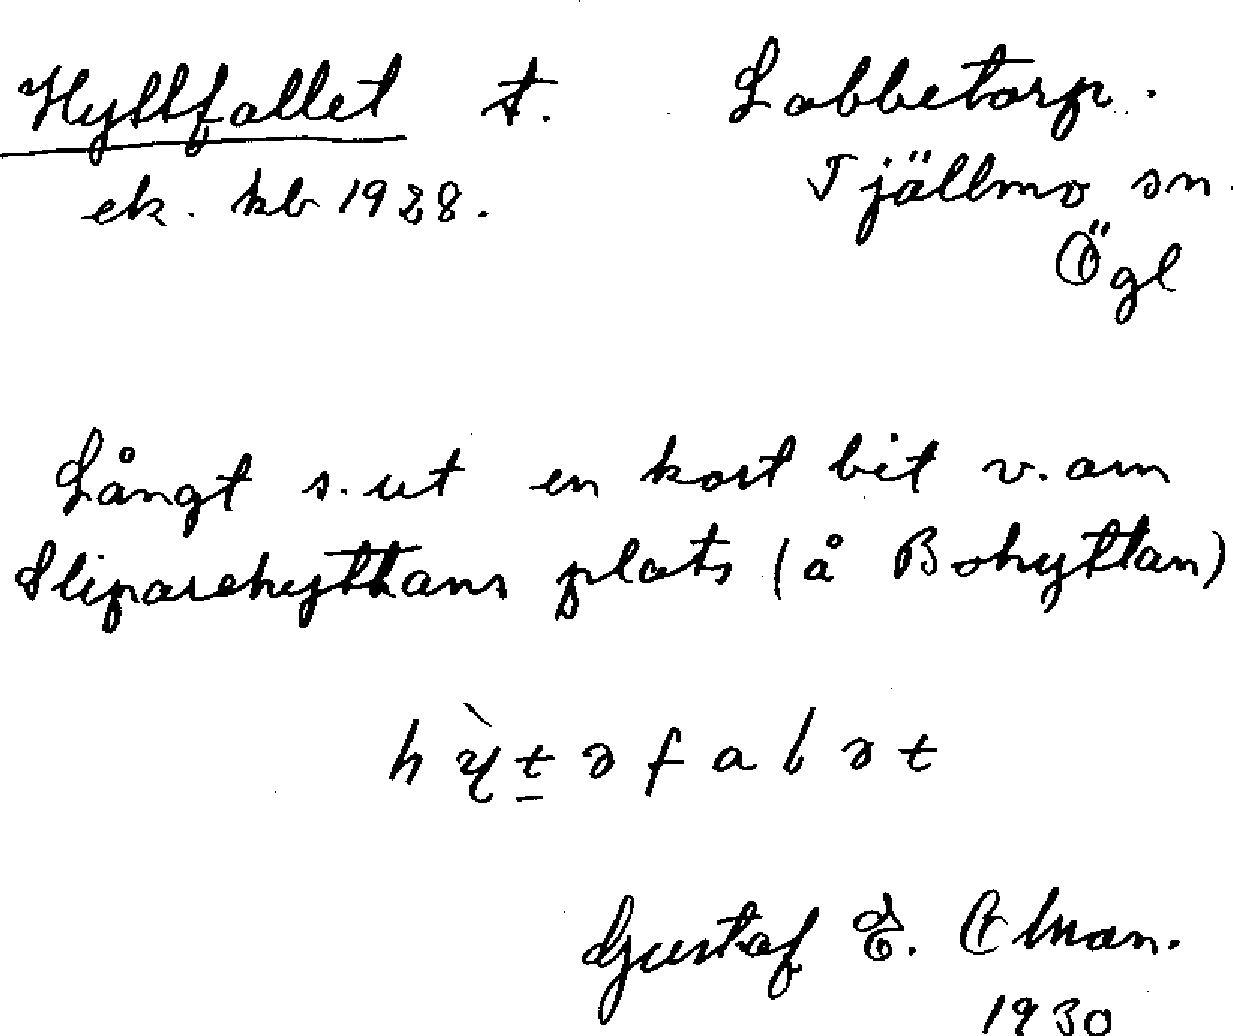 Hyttfallet t. Labbetorp.
ek. kb 1928. Tjällmo sn.
Ögl
Långt s. ut en kort bit v. om
Sliparehyttans plats (å Bohyttan)
hỳ̖t̲əfalət
Gustaf E. Elman.
1930